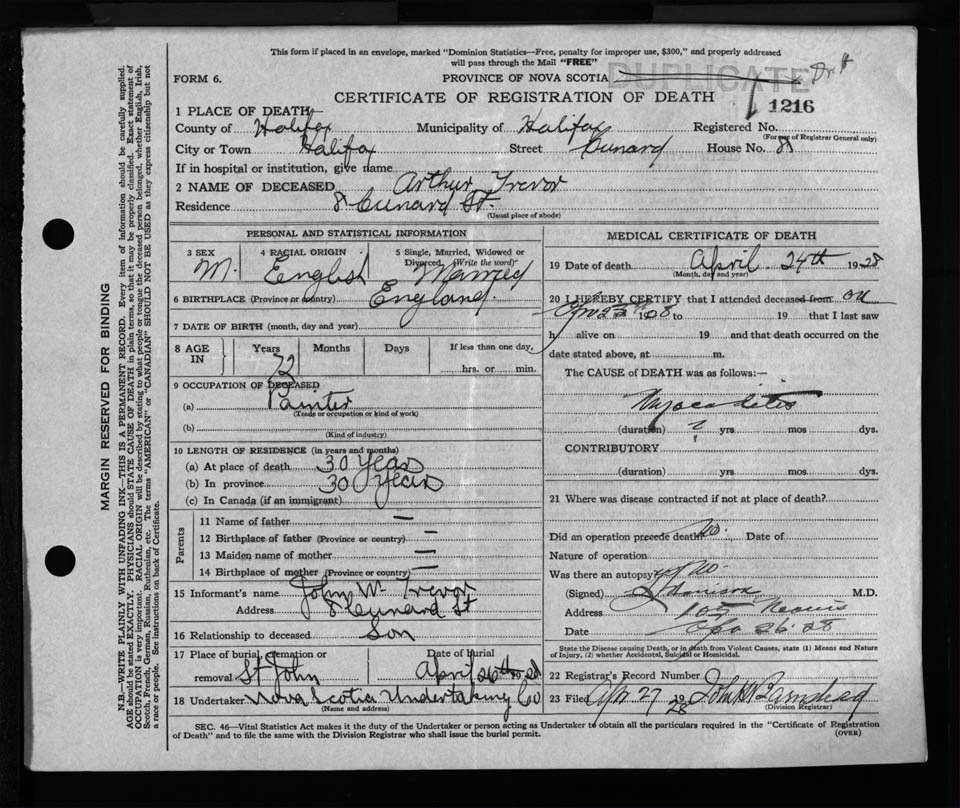 This form if placed in an envelope, marked "Dominion Statistics—Free, penalty for improper use, $300," and properly addressed
will pass through the Mail "FREE"
FORM 6.
PROVINCE OF NOVA SCOTIA
DUPLICATE
CERTIFICATE OF REGISTRATION OF DEATH
1216
1 PLACE OF DEATH—
County of Halifax Municipality of Halifax Registered No.
(For use of Registrar General only)
City or Town Halifax Street Cunard House No. 8
If in hospital or institution, give name
2 NAME OF DECEASED Arthur Trevor
Residence 8 Cunard St.
(Usual place of abode)
PERSONAL AND STATISTICAL INFORMATION
3 SEX 4 RACIAL ORIGIN 5 Single, Married, Widowed or
Divorced (Write the word)
M. English Married
6 BIRTHPLACE (Province or country) England.
7 DATE OF BIRTH (month, day and year)
8 AGE IN Years Months Days If less than one day,
72 hrs. or min.
9 OCCUPATION OF DECEASED
(a) Painter
(Trade or occupation or kind of work)
(b)
(Kind of industry)
10 LENGTH OF RESIDENCE (in years and months)
(a) At place of death 30 Years
(b) In province 30 Years
(c) In Canada (if an immigrant)
Parents
11 Name of father —
12 Birthplace of father (Province or country) —
13 Maiden name of mother —
14 Birthplace of mother (Province or country) —
15 Informant's name John W. Trevor
Address 8 Cunard St
16 Relationship to deceased Son
17 Place of burial, cremation or Date of burial
removal St John April 26th 1928
18 Undertaker Nova Scotia Undertaking Co
(Name and address)
MEDICAL CERTIFICATE OF DEATH
19 Date of death April 24th 1928
(Month, day and year)
20 I HEREBY CERTIFY that I attended deceased from on
Apr 23 1928 to 19 that I last saw
h alive on 19 and that death occurred on the
date stated above, at m.
The CAUSE of DEATH was as follows:—
Myocarditis
(duration) ? yrs mos dys.
CONTRIBUTORY
(duration) yrs. mos dys.
21 Where was disease contracted if not at place of death?
Did an operation precede death? No. Date of
Nature of operation
Was there an autopsy? No.
(Signed) M.D.
Address 105
Date Apr 26. 28
State the Disease causing Death, or in Death from Violent Causes, state (1) Means and Nature
of Injury, (2) whether Accidental, Suicidal or Homicidal.
22 Registrar's Record Number
23 Filed Apr 27 1928
(Division Registrar)
SEC. 46—Vital Statistics Act makes it the duty of the Undertaker or person acting as Undertaker to obtain all the particulars required in the "Certificate of Registration
of Death" and to file the same with the Division Registrar who shall issue the burial permit.
(OVER)
MARGIN RESERVED FOR BINDING
N.B.—WRITE PLAINLY WITH UNFADING INK—THIS IS A PERMANENT RECORD. Every item of information should be carefully supplied.
AGE should be stated EXACTLY. PHYSICIANS should STATE CAUSE OF DEATH in plain terms, so that it may be properly classified. Exact statement of
OCCUPATION is very important. RACIAL ORIGIN will be described by stating to what people or tongue the deceased person belonged, whether English, Irish,
Scotch, French, German, Russian, Ruthenian, etc. The terms "AMERICAN" or "CANADIAN" SHOULD NOT BE USED as they express citizenship but not
a race or people. See instructions on back of Certificate.